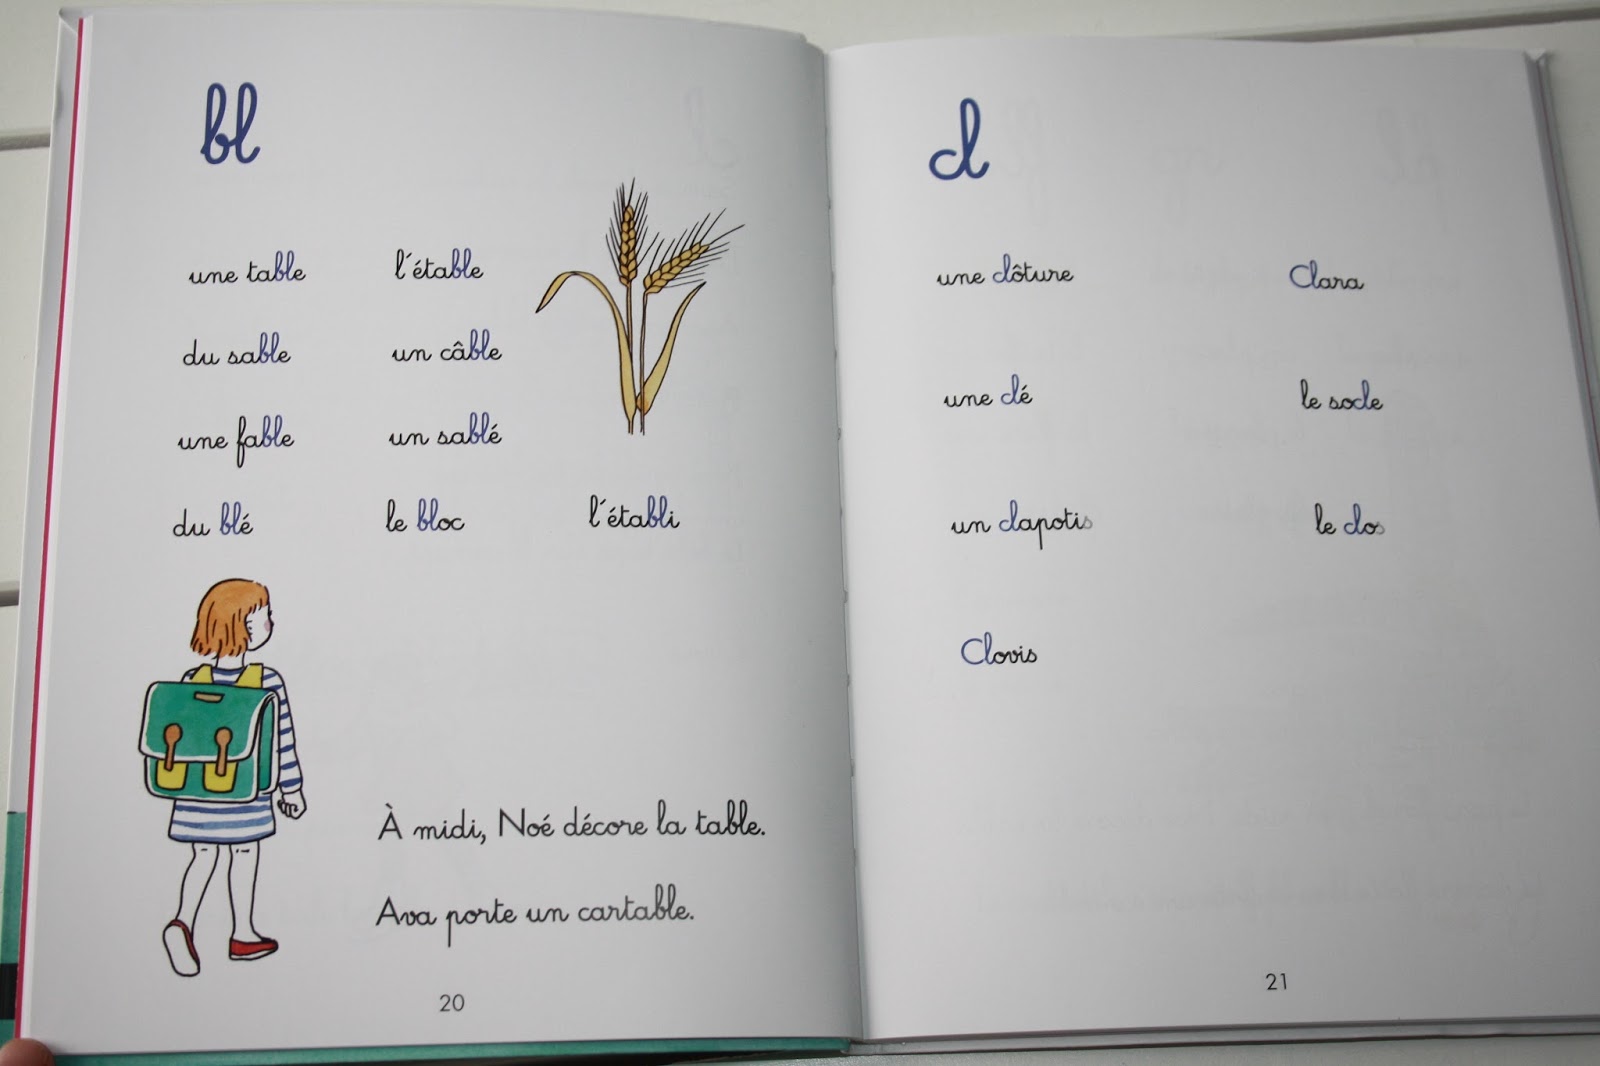 bl
une table l'étable
du sable un câble
une fable un sablé
du blé le bloc l'établi
À midi, Noé décore la table.
Ava porte un cartable.
20
cl
une clôture Clara
une clé le socle
un clapotis le clos
Clovis
21